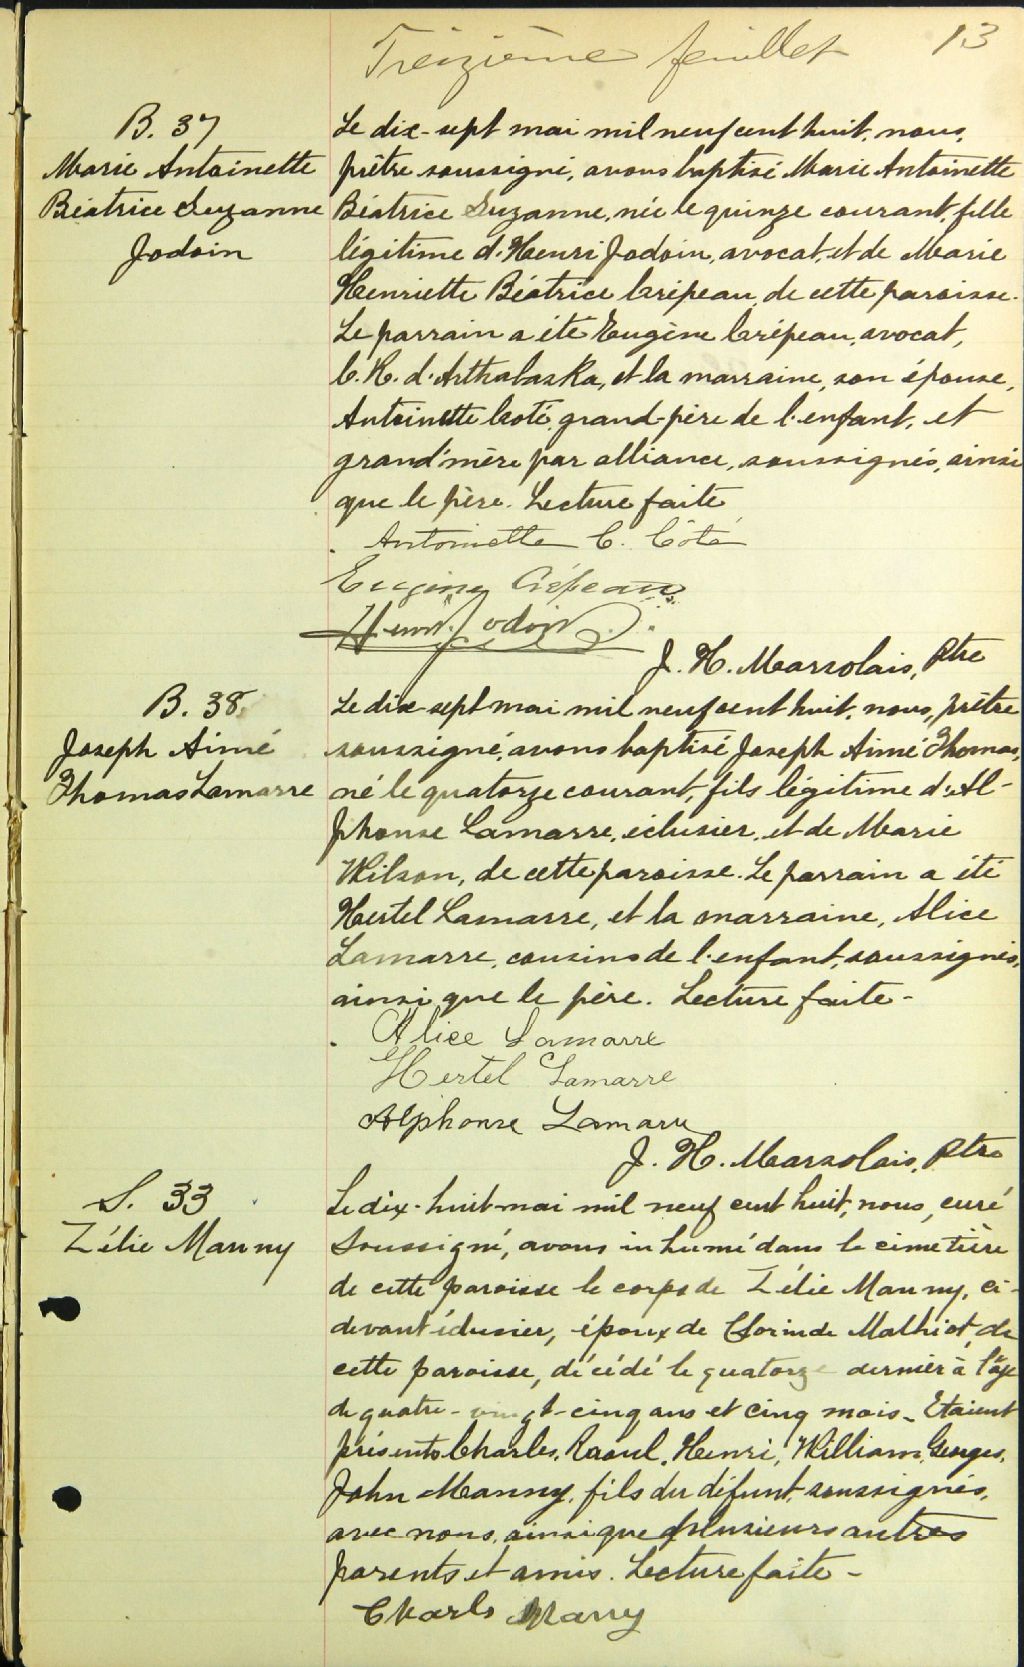 Treizième feuillet 13
B. 37
Marie Antoinette
Béatrice Suzanne
Jodoin
Le dix-sept mai mil neuf cent huit, nous,
prêtre soussigné, avons baptisé Marie Antoinette
Béatrice Suzanne, née le quinze courant, fille
légitime d'Henri Jodoin, avocat, et de Marie
Henriette Béatrice Crépeau, de cette paroisse.
Le parrain a été Eugène Crépeau, avocat,
C. R. d'Arthabaska, et la marraine, son épouse,
Antoinette Coté, grand-père de l'enfant, et
grand'mère par alliance, soussignés, ainsi
que le père. Lecture faite
Antoinette C. Côté
Eugène Crépeau
Henri Jodoin
J. H. Marsolais, Ptre
B. 38
Joseph Aimé
Thomas Lamarre
Le dix-sept mai mil neuf cent huit, nous, prêtre
soussigné, avons baptisé Joseph Aimé Thomas,
né le quatorze courant, fils légitime d'Al-
phonse Lamarre, éclusier, et de Marie
Wilson, de cette paroisse. Le parrain a été
Hertel Lamarre, et la marraine, Alice
Lamarre, cousins de l'enfant, soussignés,
ainsi que le père. Lecture faite-
Alice Lamarre
Hertel Lamarre
Alphonse Lamarre
J. H. Marsolais, Ptre
S. 33
Zélie Manny
Le dix-huit mai mil neuf cent huit, nous, curé
soussigné, avons inhumé dans le cimetière
de cette paroisse le corps de Zélie Manny, ci-
devant éclusier, époux de Clorinde Mathiot, de
cette paroisse, décédé le quatorze dernier à l'âge
de quatre-vingt-cinq ans et cinq mois. Etaient
présents Charles, Raoul, Henri, William, Georges,
John Manny, fils du défunt, soussignés,
avec nous, ainsi que plusieurs autres
parents et amis. Lecture faite-
Charles Manny